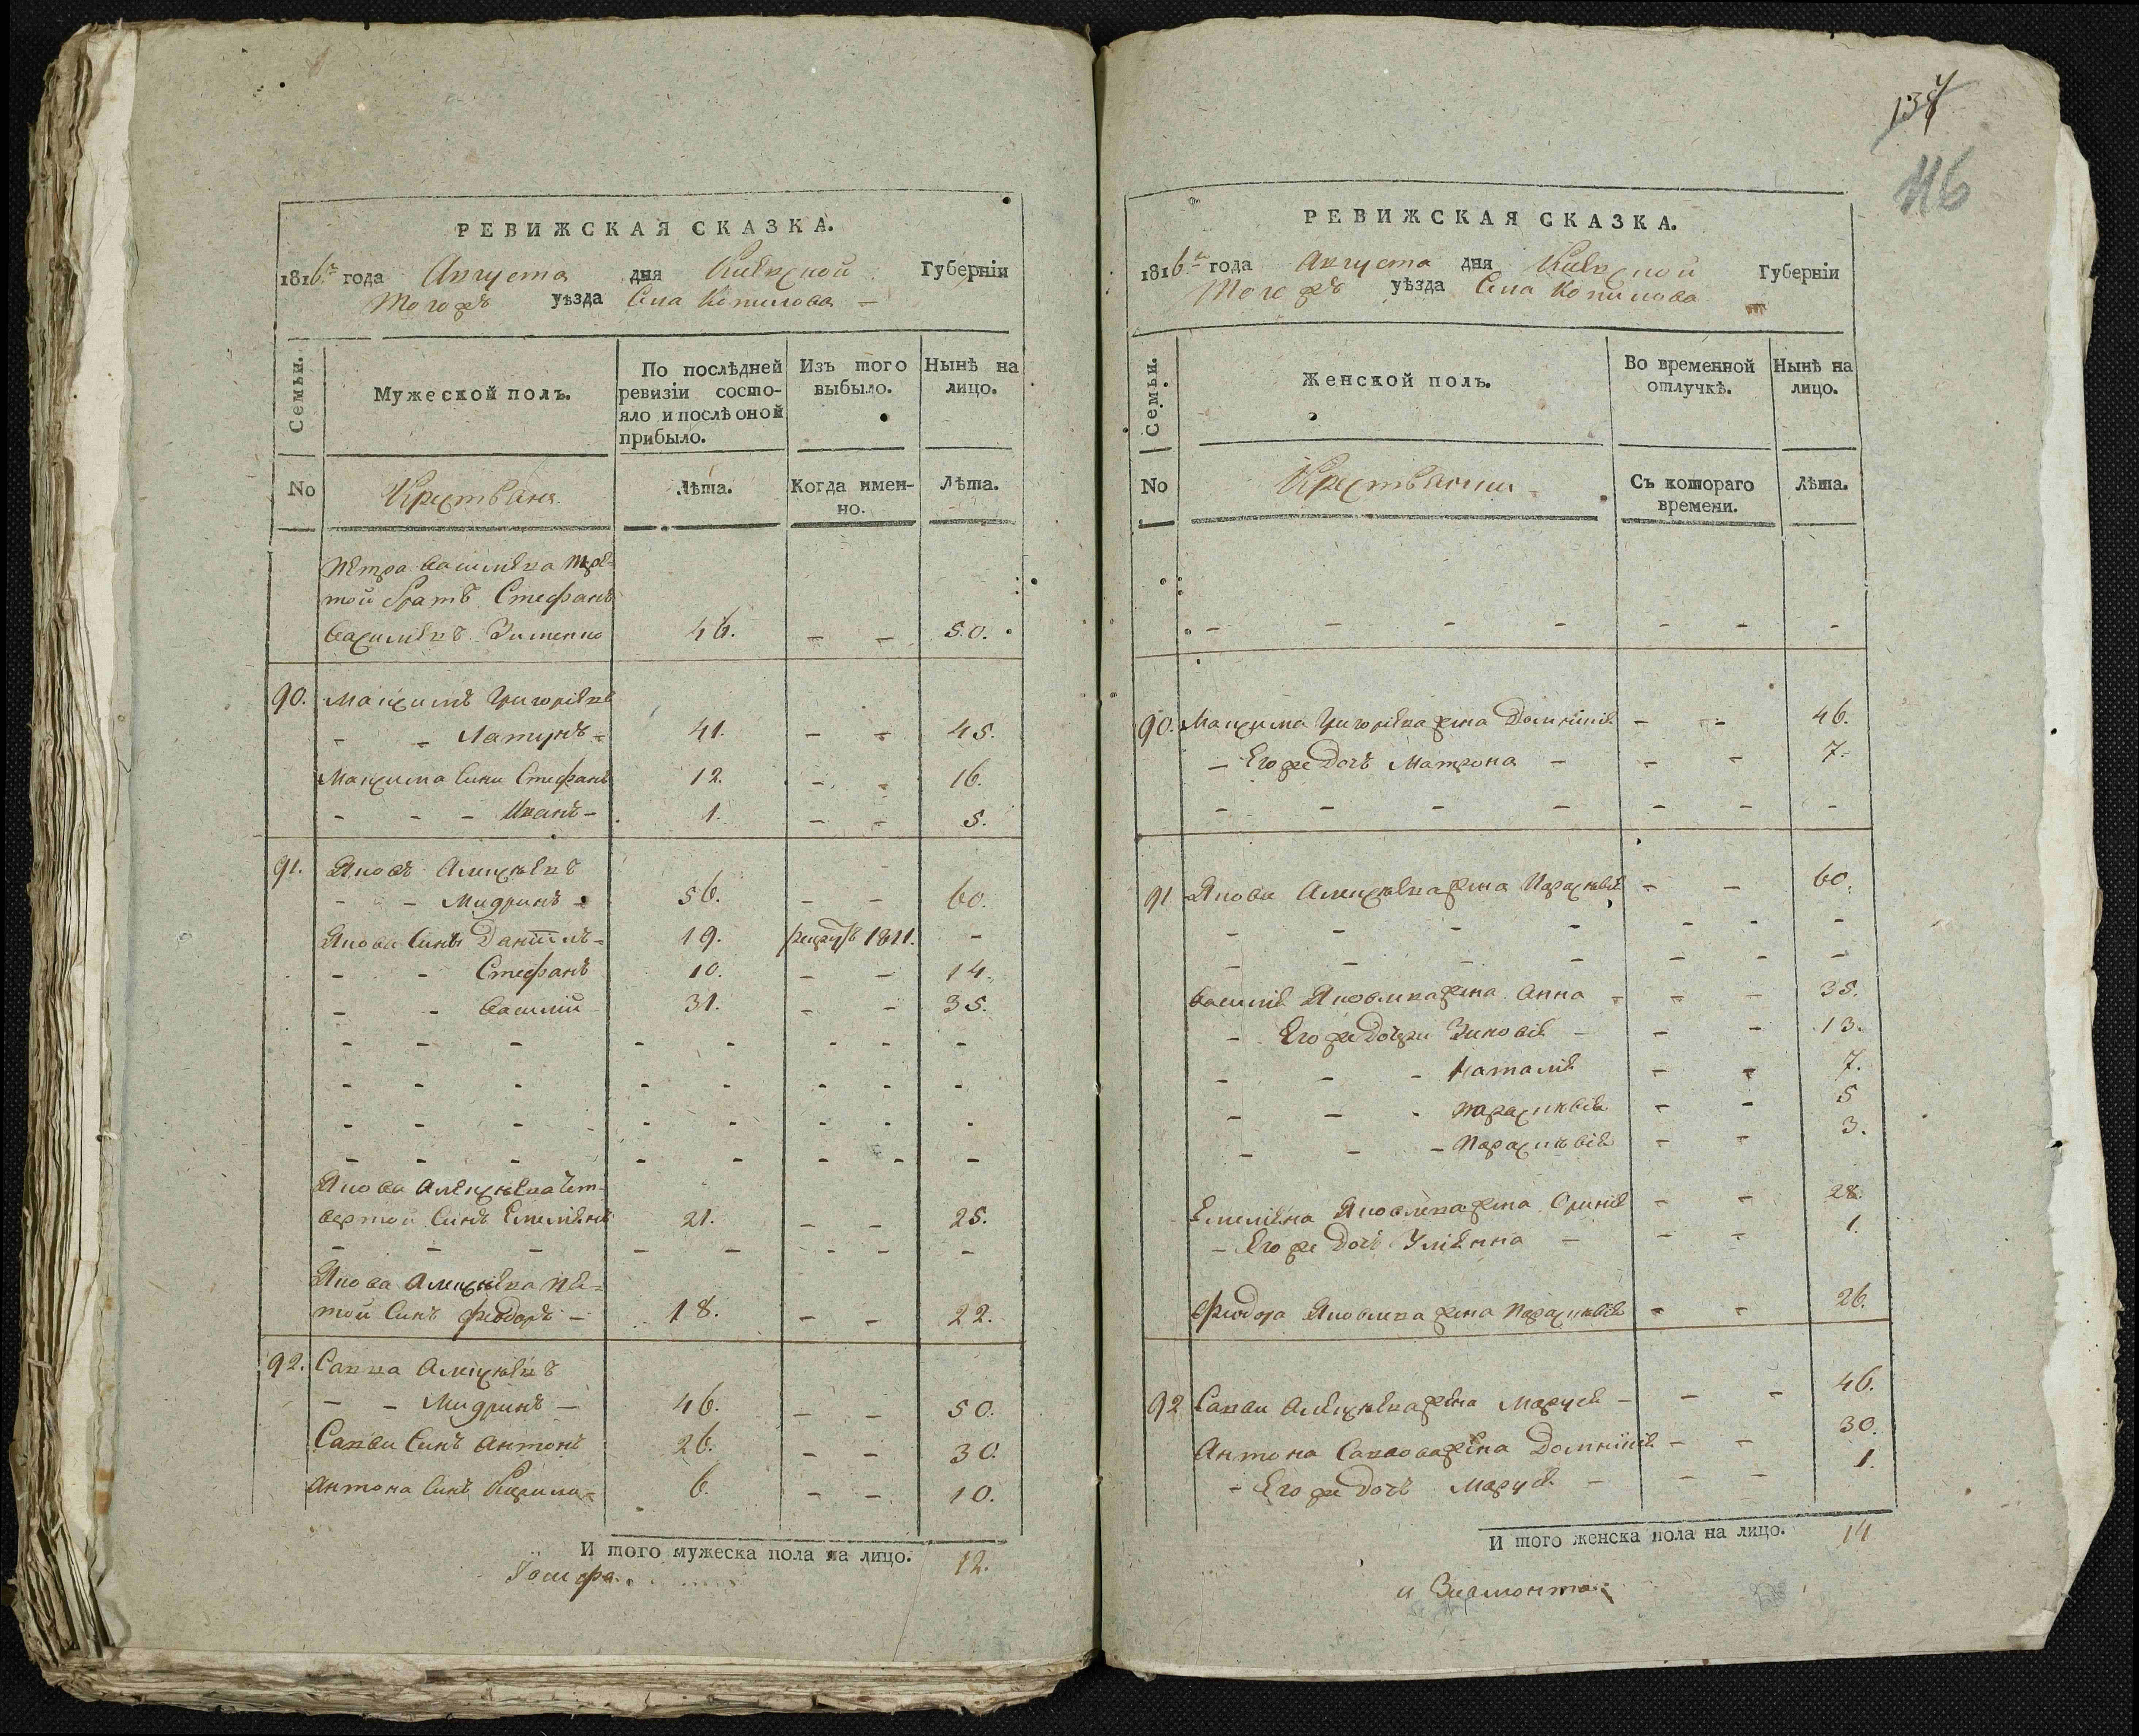 РЕВИЖСКАЯ СКАЗКА.
1816го года Августа дня Киевской Губерніи
Тогожъ уѣзда Села Копилова
Семьи.
Мужеской полъ.
По послѣдней ревизіи состо-
яло и послѣ оной
прибыло.
Изъ того
выбыло.
Нынѣ на
лицо.
No
Крестьяне
Лѣта.
Когда имен-
но.
Лѣта.
Петра Василіева тре-
той братъ Стефанъ
Василіевъ Зименко 46. - - 50.
90. Максимъ Григоріевъ
- - Латушъ - 41. - - 45.
Максима Сини Стефанъ 12. - - 16.
- - - Иванъ - 1. - - 5.
91. Яковъ Алексѣевъ
- - Мидринъ - 56. - - 60.
Якова Синъ Даніилъ - 19. рекрут 1811. -
- - Стефанъ 10. - - 14.
- - Василій 31. - - 35.
- - - - - - - -
- - - - - - - -
- - - - - - - -
- - - - - - - -
Якова Алексѣева Чет-
вертой Синъ Емеліянъ 21. - - 25.
- - - - - - - -
Якова Алексѣева пя-
той Синъ Феодоръ - 18. - - 22.
92. Савва Алексѣевъ
- - Мидринъ - 46. - - 50.
Савви Синъ Антонъ 26. - - 30.
Антона Синъ Кирило - 6. - - 10.
И того мужеска пола на лицо. 12.
Іосифа
137
116
РЕВИЖСКАЯ СКАЗКА.
1816го года Августа дня Киевской Губерніи
Тогожъ уѣзда Села Копилова
Семьи.
Женской полъ.
Во временной
отлучкѣ.
Нынѣ на
лицо.
No
Крестьянки
Съ котораго
времени.
Лѣта.
- - - - - - -
90. Максима Григоріева жена Домникія - - 46.
- Его же Дочъ Матрона - - - 7.
- - - - - - -
91 Якова Алексѣева жена Параскевія - - 60.
- - - - - - -
- - - - - - -
Василія Яковлева жена Анна - - - 35.
- Его же Дочери Зиновія - - - 13.
- - - Наталія - - 7.
- - - Параскевія - - 5
- - - Параскевія - - 3.
Емеліяна Яковлева жена Оринія - - 28.
- Его же Дочъ Уліянна - - - 1.
Феодора Яковлева жена Параскевія - - 26.
92 Савви Алексѣева жена Маруся - - - 46.
Антона Саввова жена Домникія - - 30.
- Его же Дочъ Маруся - - - 1.
И того женска пола на лицо. 14
и Зигмонта